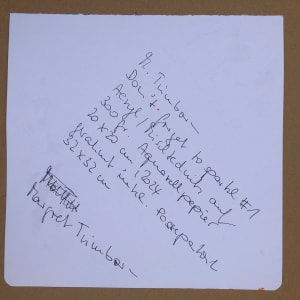 M. Trimborn
Don't forget to sparkle #1
Acryl / Mischtechnik auf
300 gr. Aquarellpapier
20 x 20 cm / 2024
gerahmt inkl. Passepartout
32 x 32 cm
Margret Trimborn